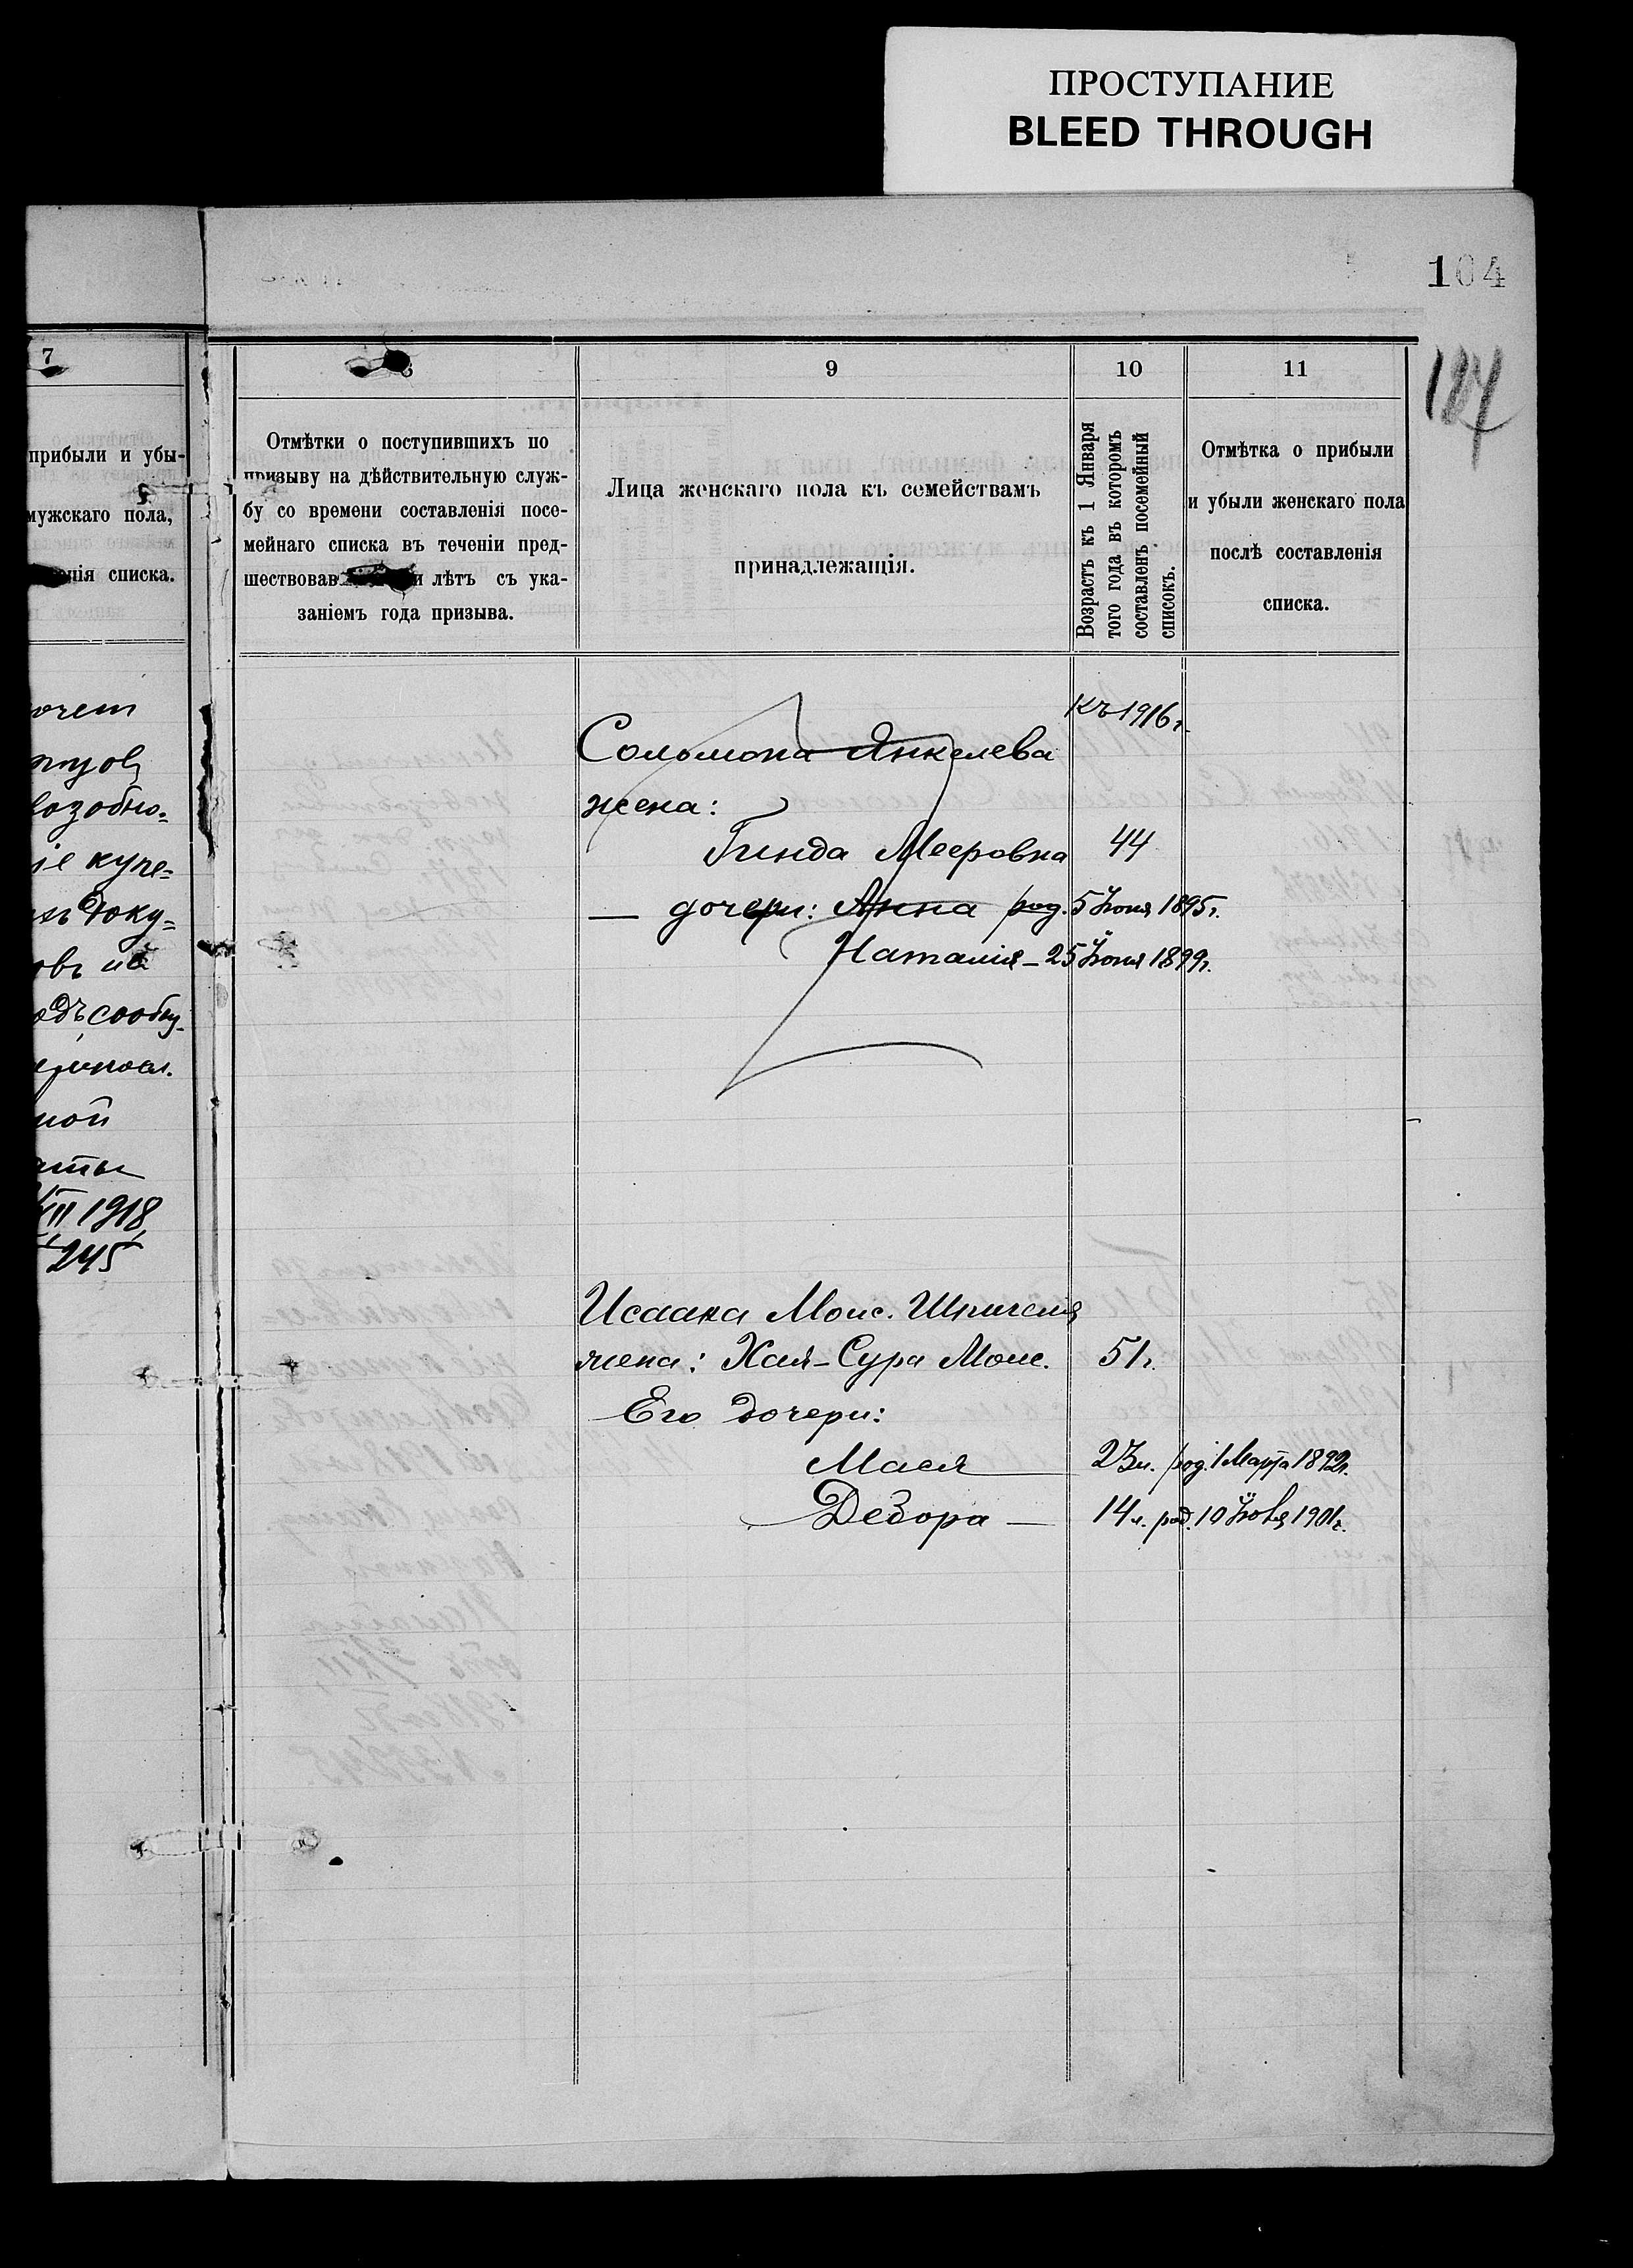 ПРОСТУПАНИЕ
BLEED THROUGH
104
7
прибыли и убы-
мужскаго пола,
списка.
возобно-
купе-
доку-
XII 1918
245
Отмѣтки о поступившихъ по
призыву на дѣйствительную служ-
бу со времени составленія посе-
мейнаго списка въ теченіи пред-
шествовав и лѣтъ съ ука-
заніемъ года призыва.
9
Лица женскаго пола къ семействамъ
принадлежащія.
10
Возрастъ къ 1 Января
того года въ которомъ
составленъ посемейный
списокъ.
11
Отмѣтка о прибыли
и убыли женскаго пола
послѣ составленія
списка.
Къ 1916 г.
Соломона Янкелева
жена:
Гинда Мееровна 44
— дочери: Анна род. 5 Іюня 1895 г.
Наталія – 25 Іюня 1899 г.
Исаака Моис.
жена: Хая-Сура Моис. 51 г.
Его дочери:
Мася 23 л. род. 1 Марта 1892 г.
Дебора — 14 л. род. 10 1901 г.